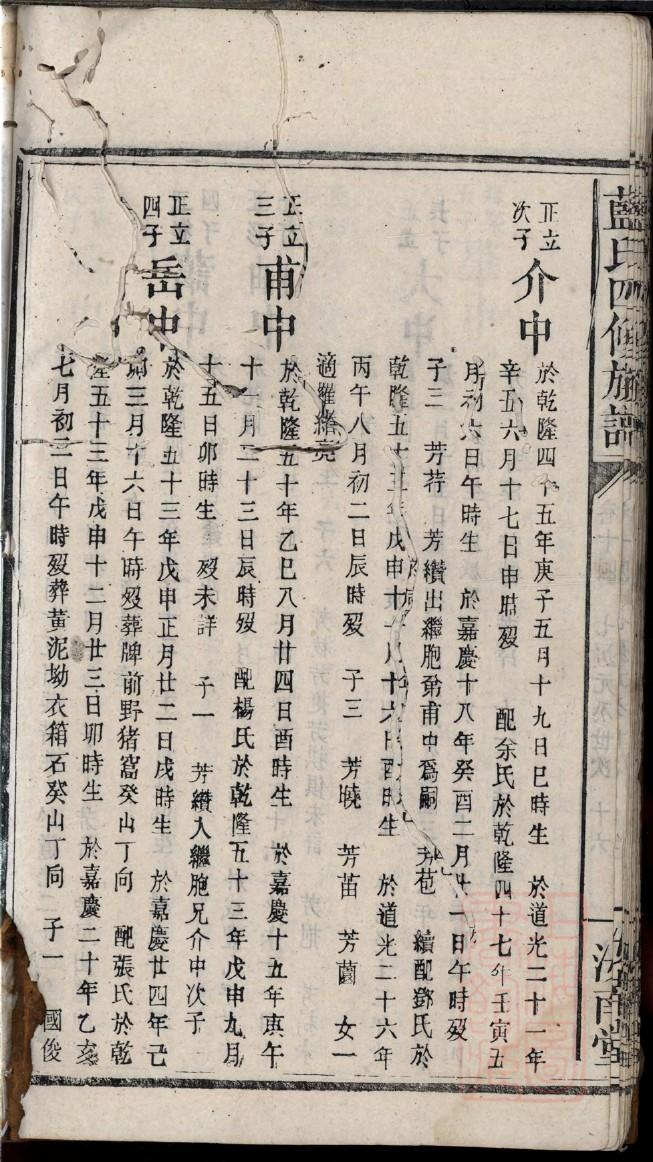 藍氏四修族譜
汝南堂
正立
次子
介中
於乾隆四十五年庚子五月十九日巳時生 於道光二十一年
辛丑六月十七日申時歿 配余氏於乾隆四十七年壬寅五
月初六日午時生 於嘉慶十八年癸酉二月十一日午時歿
子三 芳荇 芳纘出繼胞弟甫中爲嗣 芳苞 續配鄧氏於
乾隆五十三年戊申十一月十六日酉時生 於道光二十六年
丙午八月初二日辰時歿 子三 芳曉 芳苗 芳蘭 女一
適羅緒亮
正立
三子
甫中
於乾隆五十年乙巳八月廿四日酉時生 於嘉慶十五年庚午
十一月二十三日辰時歿 配楊氏於乾隆五十三年戊申九月
十五日卯時生 歿未詳 子一 芳纘入繼胞兄介中次子
正立
四子
岳中
於乾隆五十三年戊申正月廿二日戌時生 於嘉慶廿四年己
卯三月十六日午時歿葬牌前野猪窩癸山丁向 配張氏於乾
隆五十三年戊申十二月廿三日卯時生 於嘉慶二十年乙亥
七月初三日午時歿葬黃泥坳衣箱石癸山丁向 子一 國俊